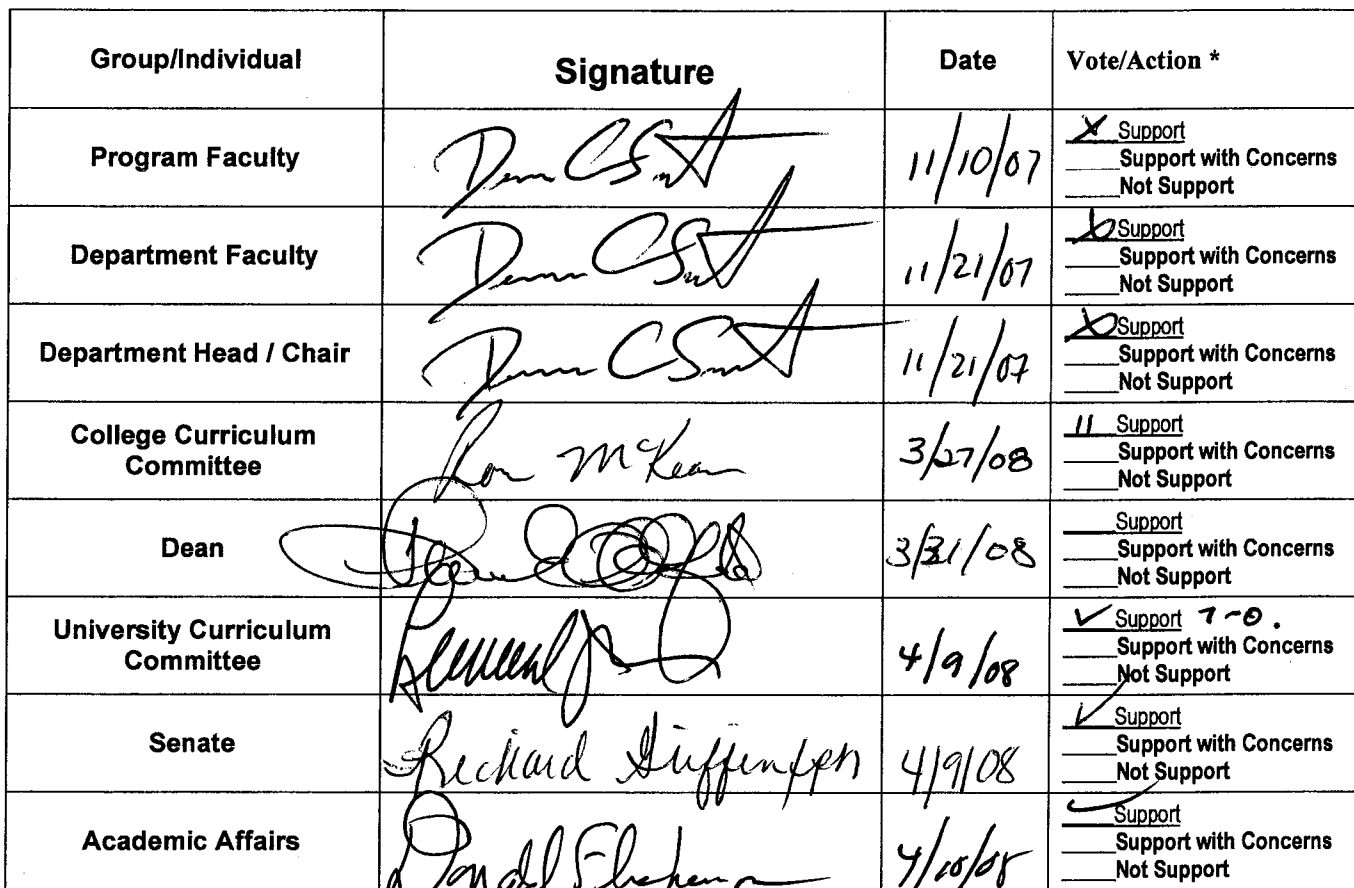 Group/Individual Signature Date Vote/Action *
Program Faculty 11/10/07 X Support
Support with Concerns
Not Support
Department Faculty 11/21/07 Support
Support with Concerns
Not Support
Department Head / Chair 11/21/07 Support
Support with Concerns
Not Support
College Curriculum
Committee Ron McKean 3/27/08 11 Support
Support with Concerns
Not Support
Dean 3/31/08 Support
Support with Concerns
Not Support
University Curriculum
Committee 4/9/08 ✓ Support 7-0.
Support with Concerns
Not Support
Senate Richard 4/9/08 ✓ Support
Support with Concerns
Not Support
Academic Affairs Donald 4/10/08 ✓ Support
Support with Concerns
Not Support